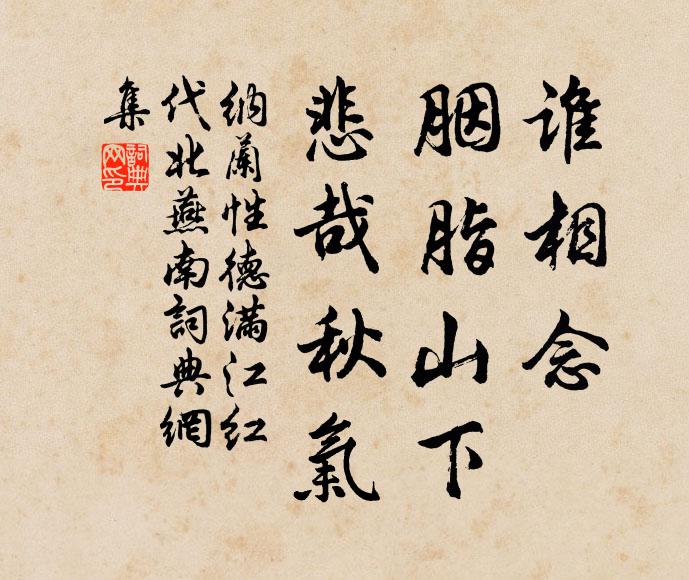 谁相念
胭脂山下
悲哉秋氣
纳蘭性德满江红
代北燕南詞典網
集
詞典网印